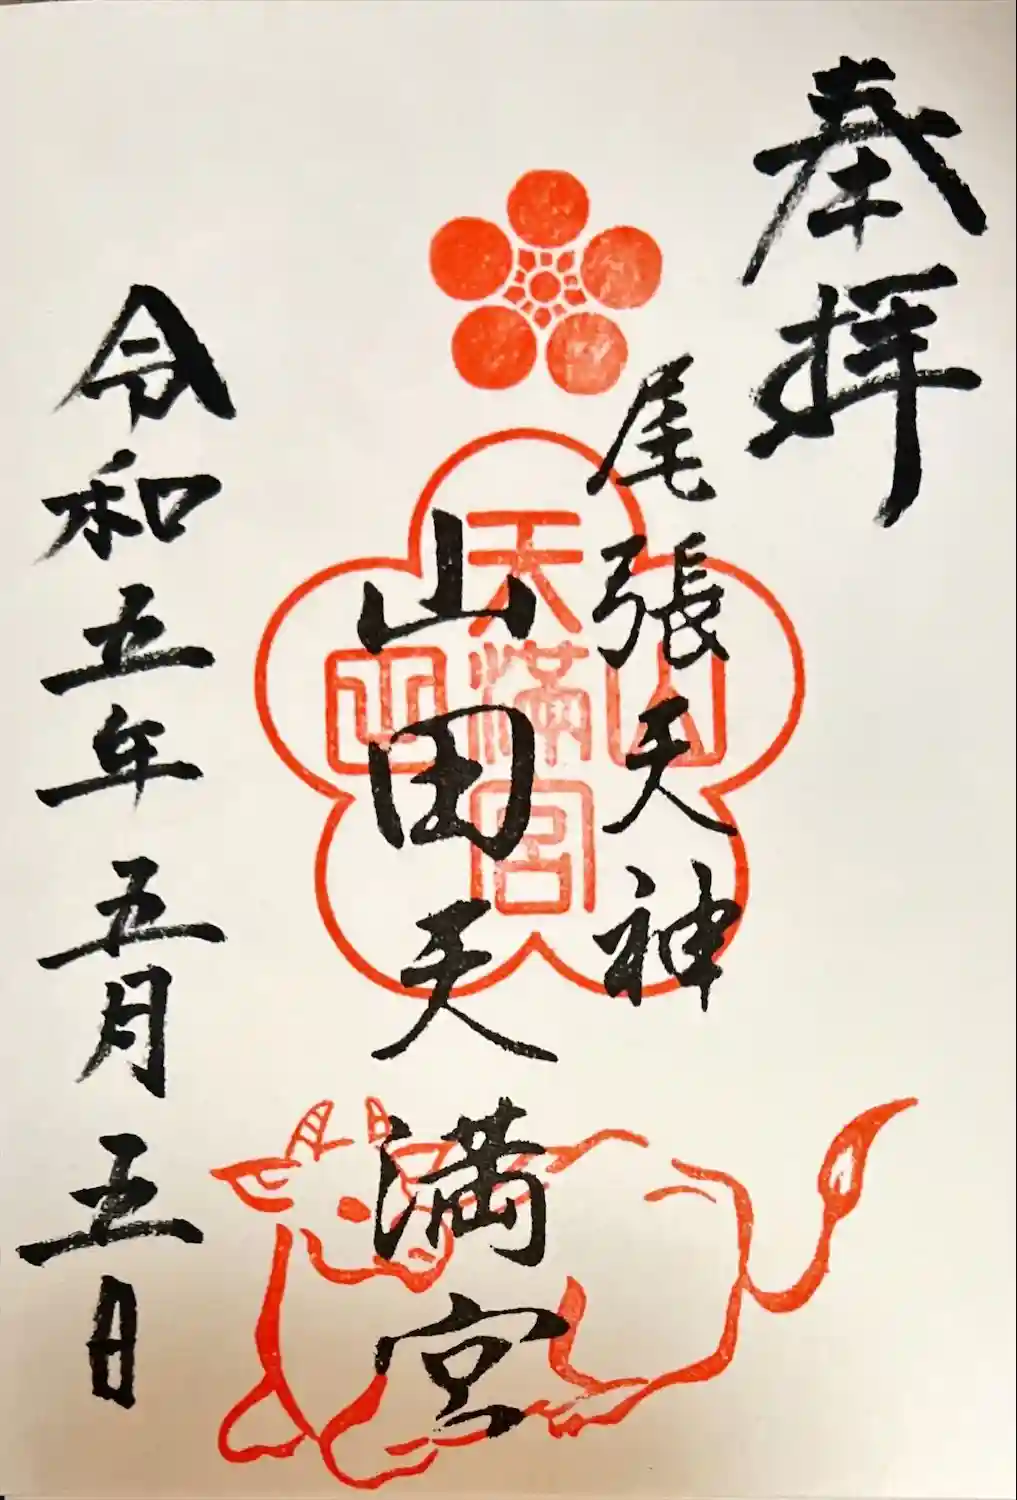 奉拝
尾張天神
山田天満宮
令和五年五月五日
天満宮
山